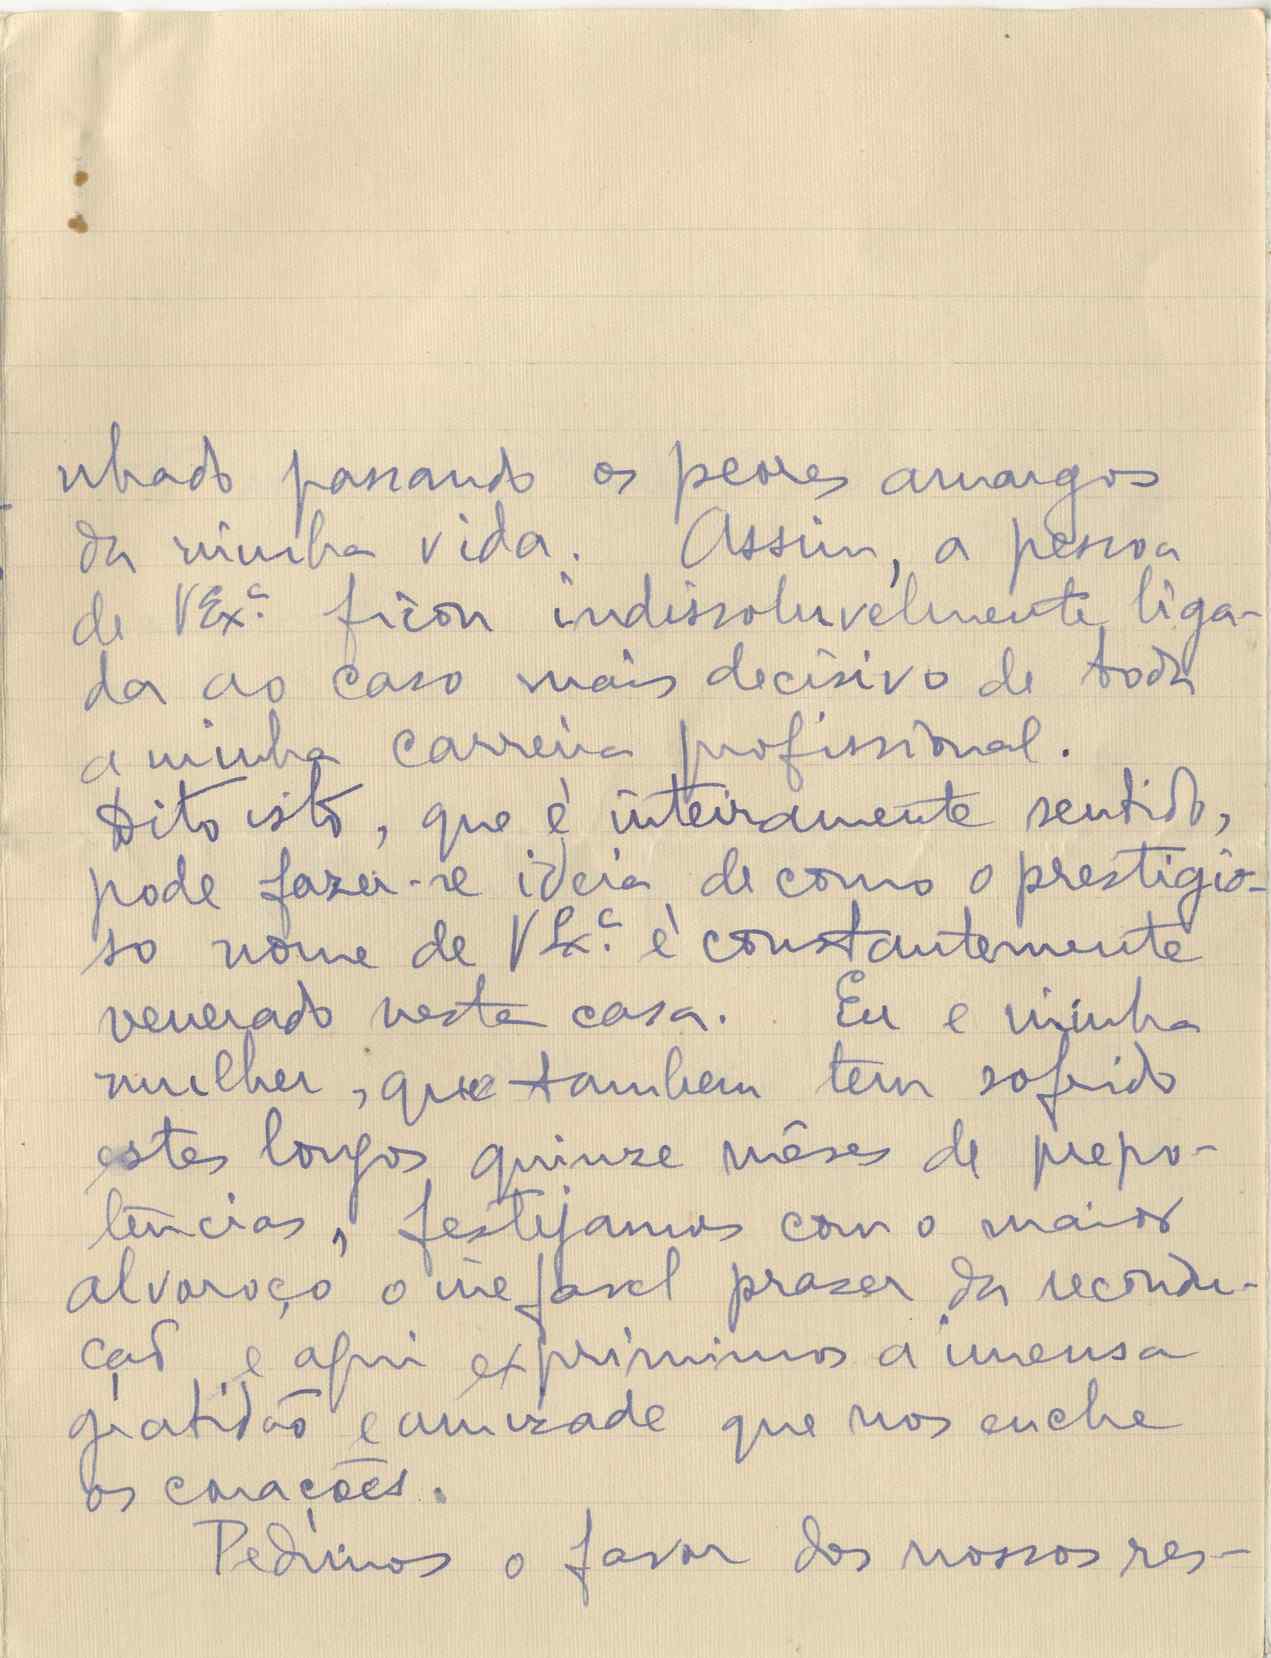 nhado passando os peores amargos
da minha vida. Assim, a pessoa
de VExª. ficou indissoluvelmente liga-
da ao caso mais decisivo de toda
a minha carreira profissional.
Dito isto, que é inteiramente sentido,
pode fazer-se ideia de como o prestigio-
so nome de VExª. é constantemente
venerado nesta casa. Eu e minha
mulher, que tambem tem sofrido
estes longos quinze mêses de prepo-
tências, festejamos com o maior
alvoroço o inefavel praser da recondu-
ção e aqui exprimimos a imensa
gratidão e amizade que nos enche
os corações.
Pedimos o favor dos nossos res-